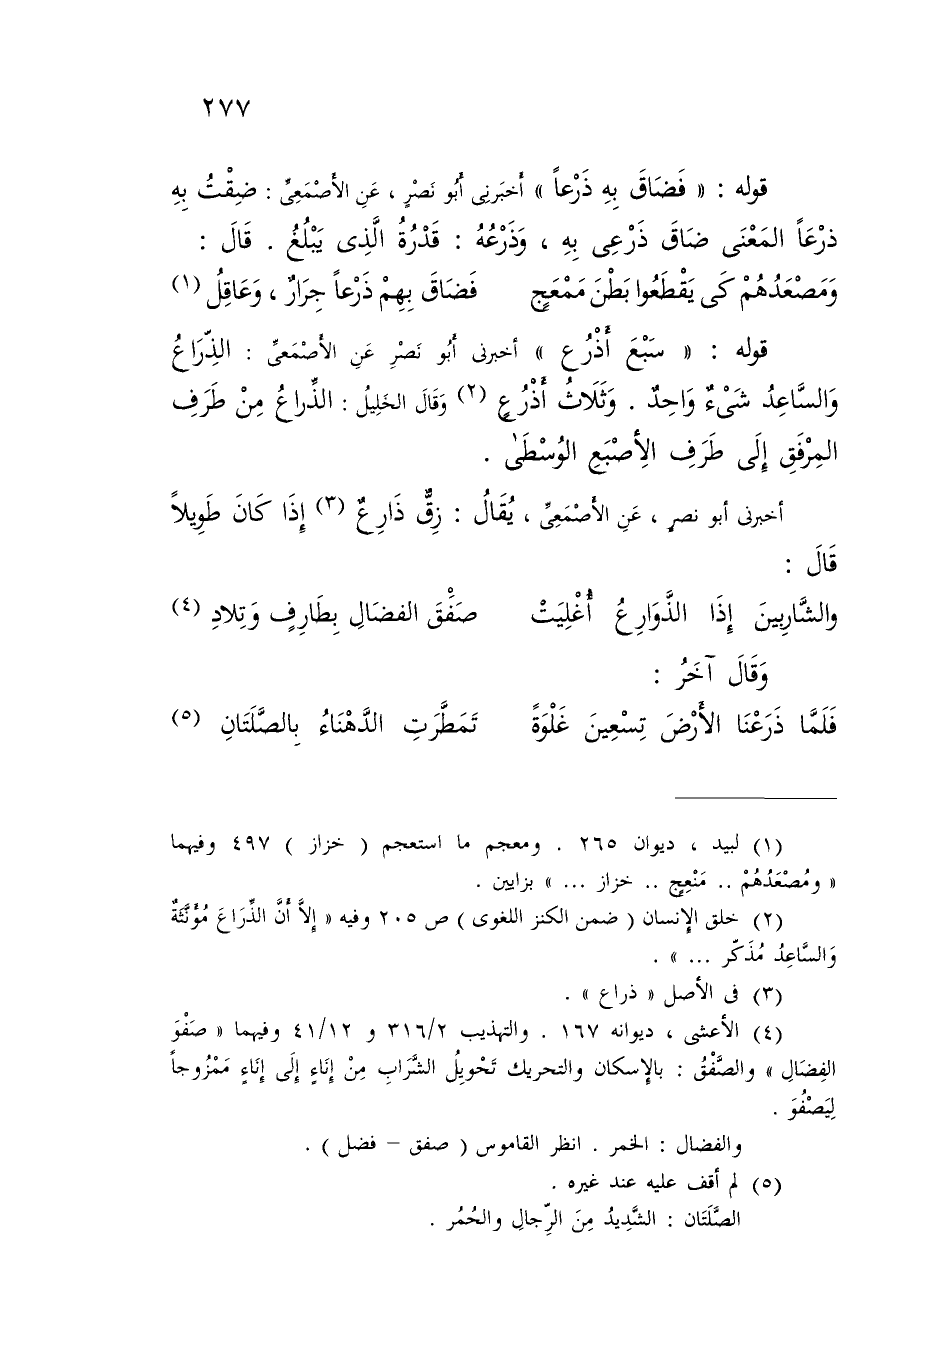 ٢٧٧
قوله : « فَضَاقَ بِهِ ذَرْعاً » أخبَرنِى أَبُو نَصْرٍ ، عَنِ الأَصْمَعِىِّ : ضِقْتُ بِهِ
ذرْعَاً المَعْنَى ضَاقَ ذَرْعِى بِهِ ، وَذَرْعُهُ : قَدْرُهُ الَّذِى يَبْلُغُ . قَالَ :
وَمَصْعَدُهُمْ كَى يَقْطَعُوا بَطْنَ مَمْعَجٍ فَضَاقَ بِهِمْ ذَرْعاً جِرَارٌ ، وَعَاقِلُ (١)
قوله : « سَبْعَ أَذْرُع » أخبرنى أَبُو نَصْرِ عَنِ الأصْمَعىِّ : الذِّرَاعُ
وَالسَّاعِدُ شَىْءٌ وَاحِدٌ . وَثَلَاثُ أَذْرُعٍ (٢) وَقَالَ الخَلِيلُ : الذِّراعُ مِنْ طَرَفِ
المِرْفَقِ إِلَى طَرَفِ الِأصْبَعِ الوُسْطَىٰ .
أخبرنى أبو نصرٍ ، عَنِ الأصْمَعِىِّ ، يُقَالُ : زِقٌّ ذَارِعٌ (٣) إِذَا كَانَ طَوِيلاً
قَالَ :
والشَّارِبِينَ إِذَا الذَّوَارِعُ أُغْلِيَتْ صَفْقَ الفضَالِ بِطَارِفٍ وَتِلادِ (٤)
وَقَالَ آخَرُ :
فَلَمَّا ذَرَعْنَا الأَرْضَ تِسْعِينَ غَلْوَةً تَمَطَّرَتِ الدَّهْنَاءُ بِالصَّلَتَانِ (٥)
(١) لبيد ، ديوان ٢٦٥ . ومعجم ما استعجم ( خزاز ) ٤٩٧ وفيهما
« ومُصْعَدُهُمْ .. مَنْعِجٍ .. خزاز ... » بزايين .
(٢) خلق الإنسان ( ضمن الكنز اللغوى ) ص ٢٠٥ وفيه « إِلاَّ أَنَّ الذِّرَاعَ مُؤَنَّثَةٌ
وَالسَّاعِدُ مُذَكّر ... » .
(٣) فى الأصل « ذراع » .
(٤) الأعشى ، ديوانه ١٦٧ . والتهذيب ٣١٦/٢ و ٤١/١٢ وفيهما « صَفْوَ
الفِضَالِ » والصَّفْقُ : بالإسكان والتحريك تَحْوِيلُ الشَّرَابِ مِنْ إِنَاءٍ إِلَى إِنَاءٍ مَمْزُوجاً
لِيَصْفُوَ .
والفضال : الخمر . انظر القاموس ( صفق – فضل ) .
(٥) لم أقف عليه عند غيره .
الصَّلَتَان : الشَّدِيدُ مِنَ الرِّجالِ والحُمُر .